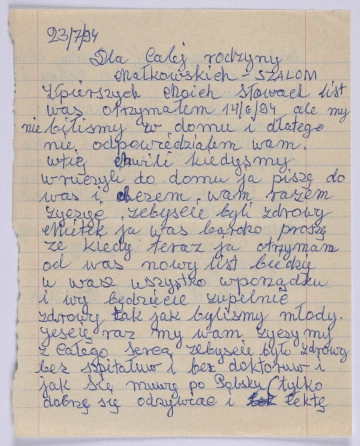 23/7/94
Dla Całej rodzyny
Małkowskich - SZALOM
Zpierszych moich słowach list
was otrzymałem 14/6/94 ale my
nie byliśmy w domu i dlatego
nie odpowiedziałem wam.
wtej chwili kiedyśmy
wruczyli do domu ja piszę do
was i chezem, wam razem
zyczyć, zebyście byli zdrowy
Mietek ja was bardzo proszę
ze kiedy teraz ja otrzymam
od was nowy list biedzie
u was wszystko wporządku
i wy będziecie zupełnie
zdrowy tak jak byliśmy młody.
jescię raz my wam życzymy
z całego serca zebyście byli zdrowy
bez szpitalów i bez doktoruw i
jak się muwę po Polsku (tylko
dobrzę się odzywiac i lektę